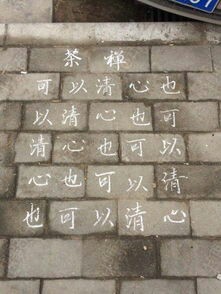 茶禅
可以清心也
以清心也可
清心也可以
心也可以清
也可以清心